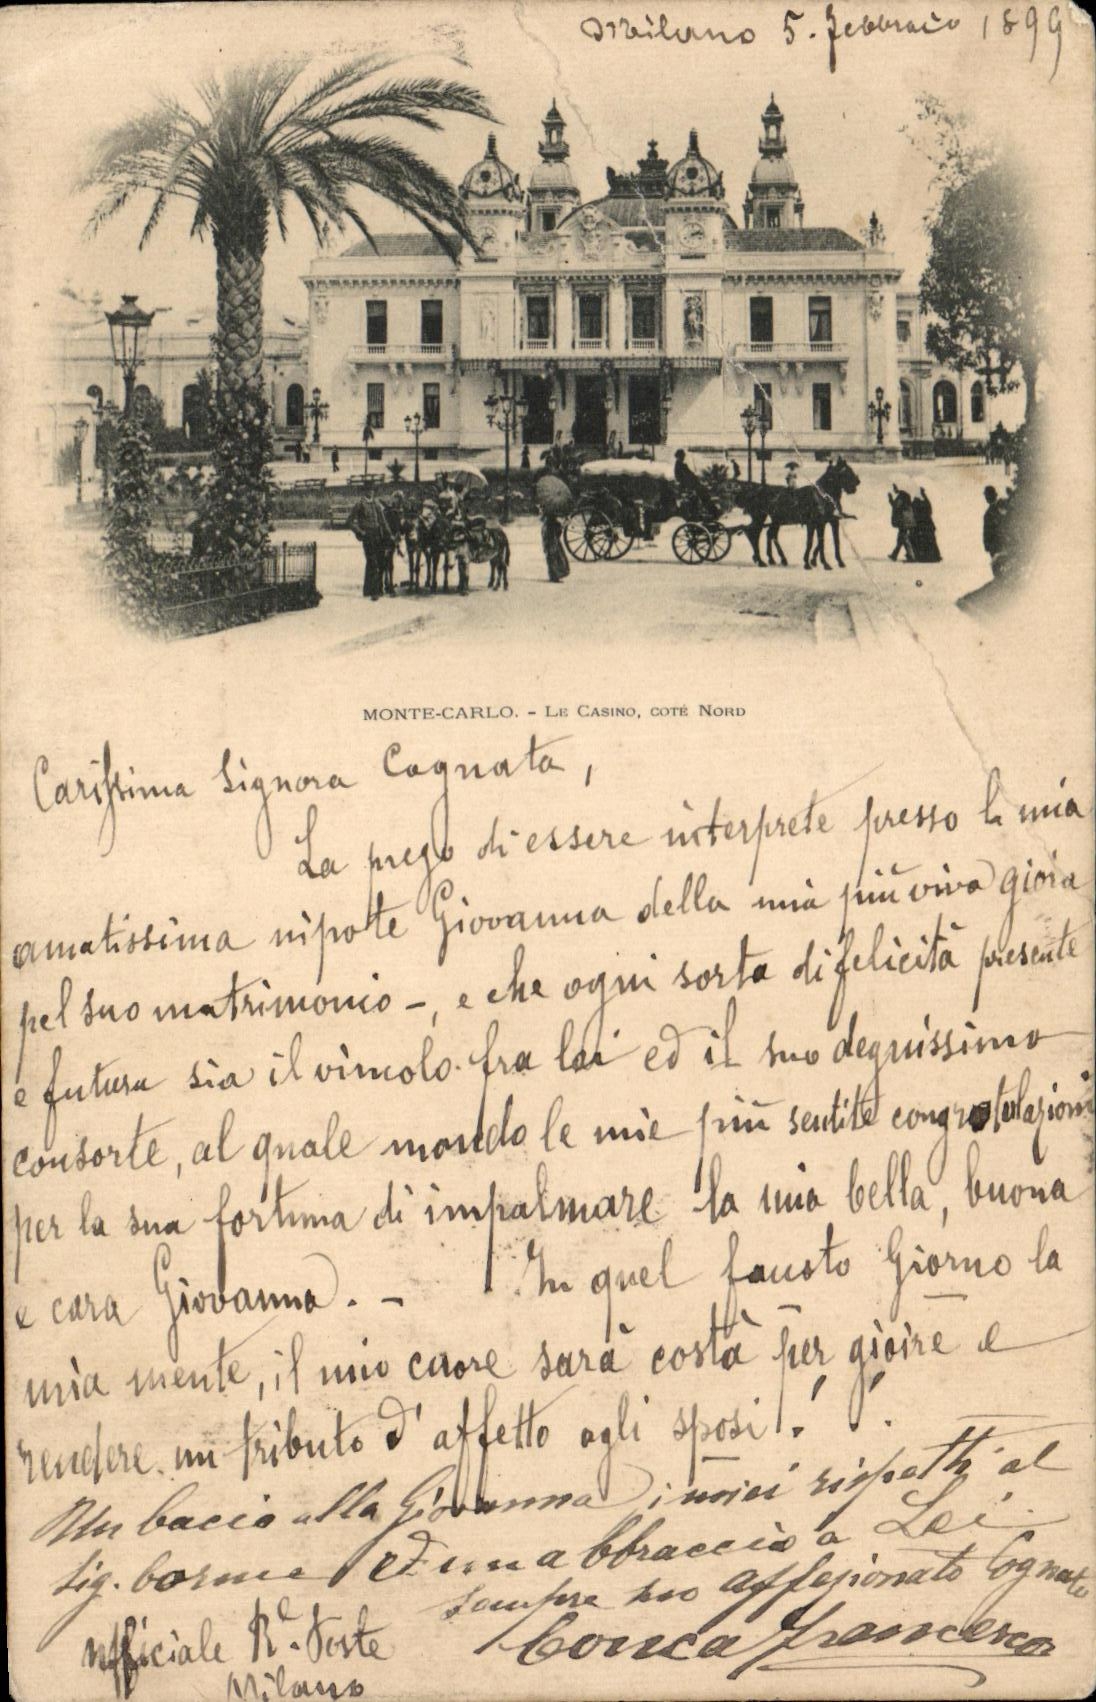 Milano 5. Febbraio 1899
MONTE-CARLO. - LE CASINO, COTÉ NORD
Carissima Signora Cognata,
La prego di essere interprete presso la mia
amatissima nipote Giovanna della mia più viva gioia
pel suo matrimonio -, e che ogni sorta di felicità presente
e futura sia il vincolo fra lei ed il suo degnissimo
consorte, al quale mando le mie più sentite congratulazioni
per la sua fortuna di impalmare la mia bella, buona
e cara Giovanna. - In quel fausto Giorno la
mia mente, il mio cuore sarà costà per gioire e
rendere un tributo d'affetto agli sposi!
Un bacio alla Giovanna, i miei rispetti al
Sig. Ed un abbraccio a Lei.
Sempre suo affezionato Cognato
Conca Francesco
Ufficiale Re. Poste
Milano